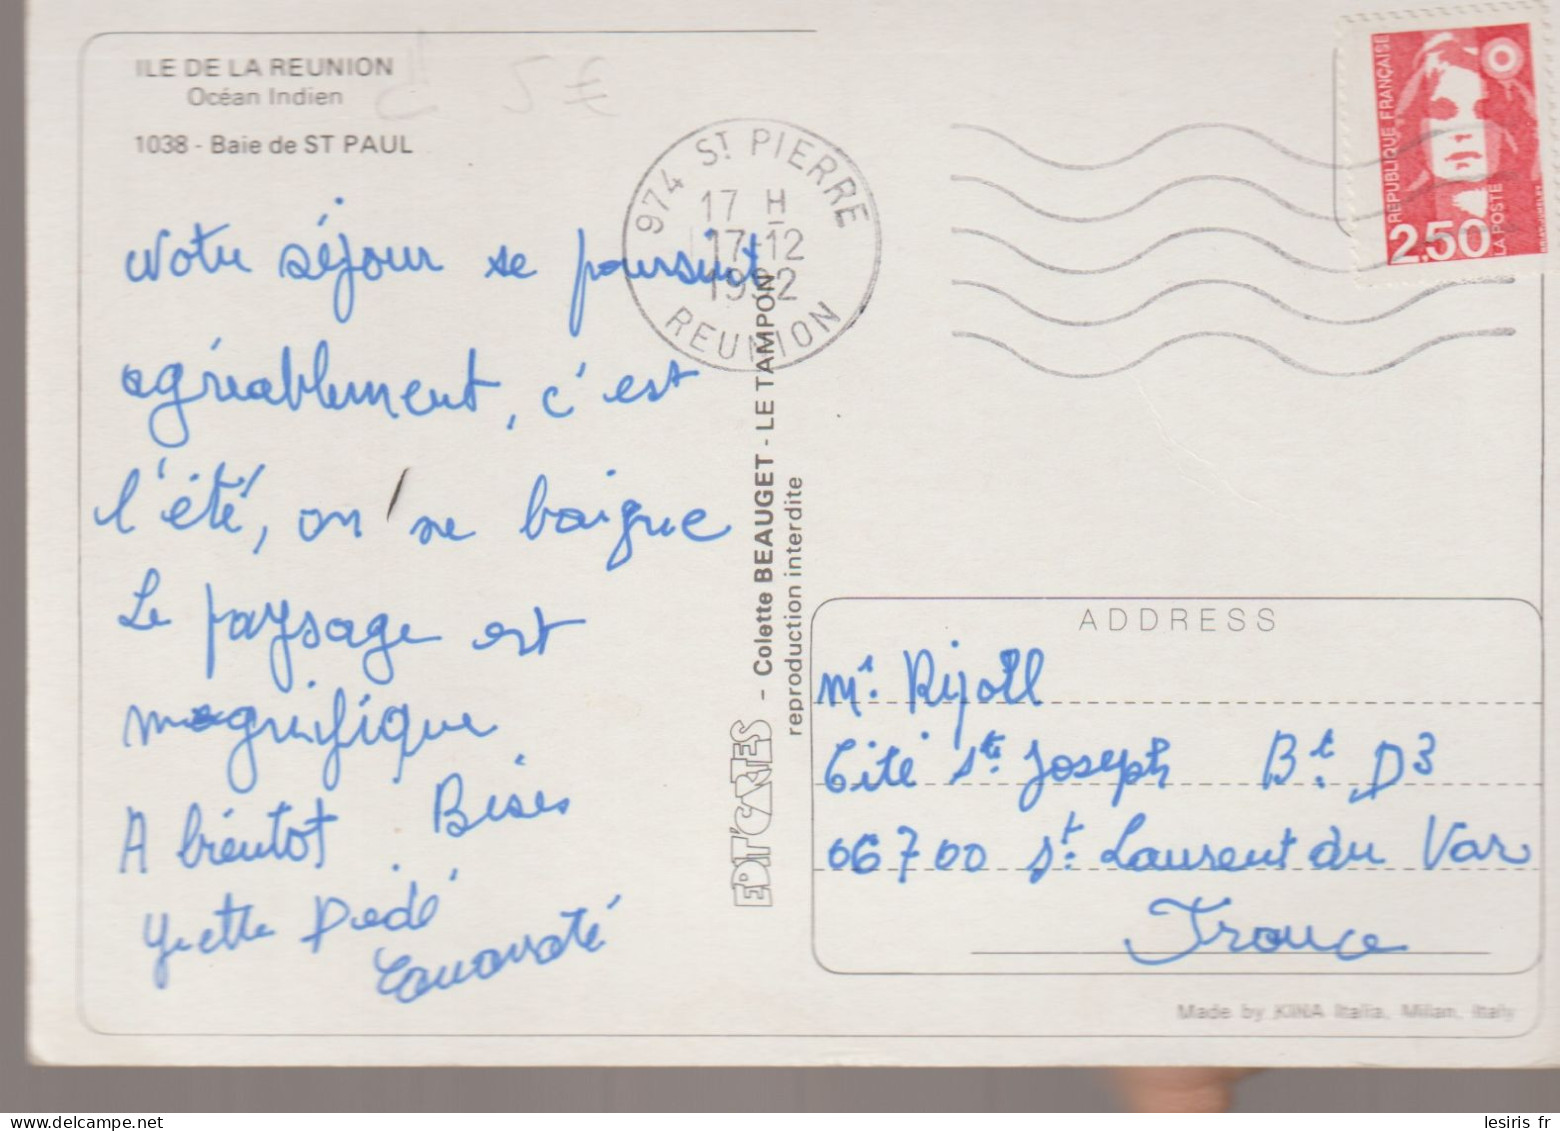 ILE DE LA REUNION
Océan Indien
1038 - Baie de ST PAUL
5 €
Notre séjour se poursuit
agréablement, c'est
l'été, on se baigne
Le paysage est
magnifique
A bientot. Bises
Yvette Dédé
974 ST PIERRE
17 H
17-12
1992
REUNION
EDIT'CARTES - Colette BEAUGET - LE TAMPON
reproduction interdite
REPUBLIQUE FRANÇAISE
2.50
LA POSTE
ADDRESS
Mr. Rijoll
Cité Ste Joseph Bt. D3
06700 St. Laurent du Var
France
Made by KINA Italia, Milan, Italy
lesiris fr